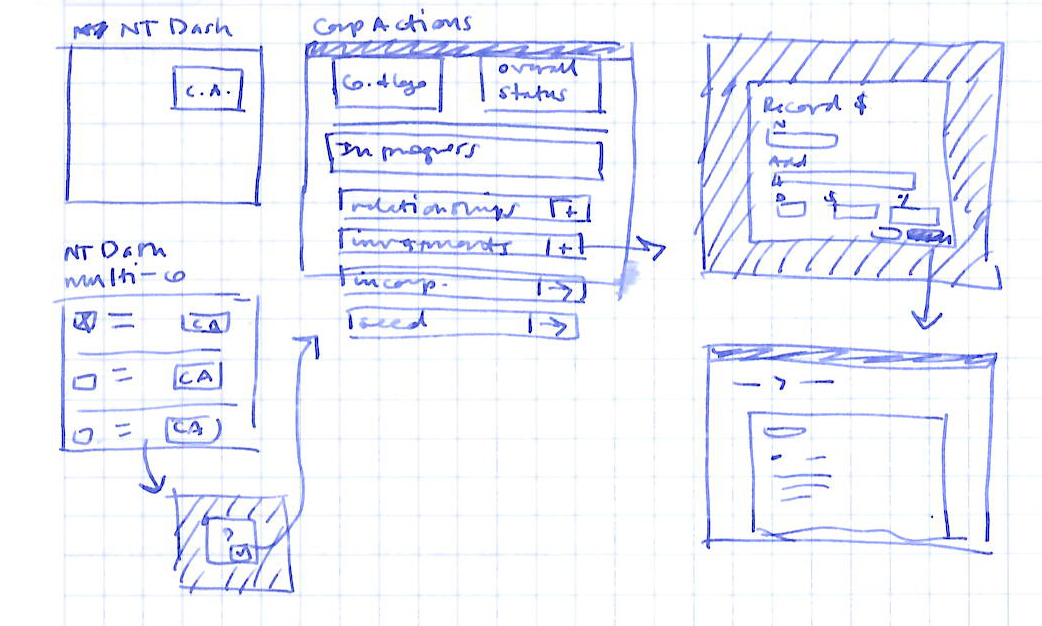 NT Dash
C.A.
NT Dash
multi-co
CA
CA
CA
?
Comp Actions
Co. + logo
overall
status
In progress
relationships +
investments +
incorp. →
seed →
Record $
N
Add
A
D $ %